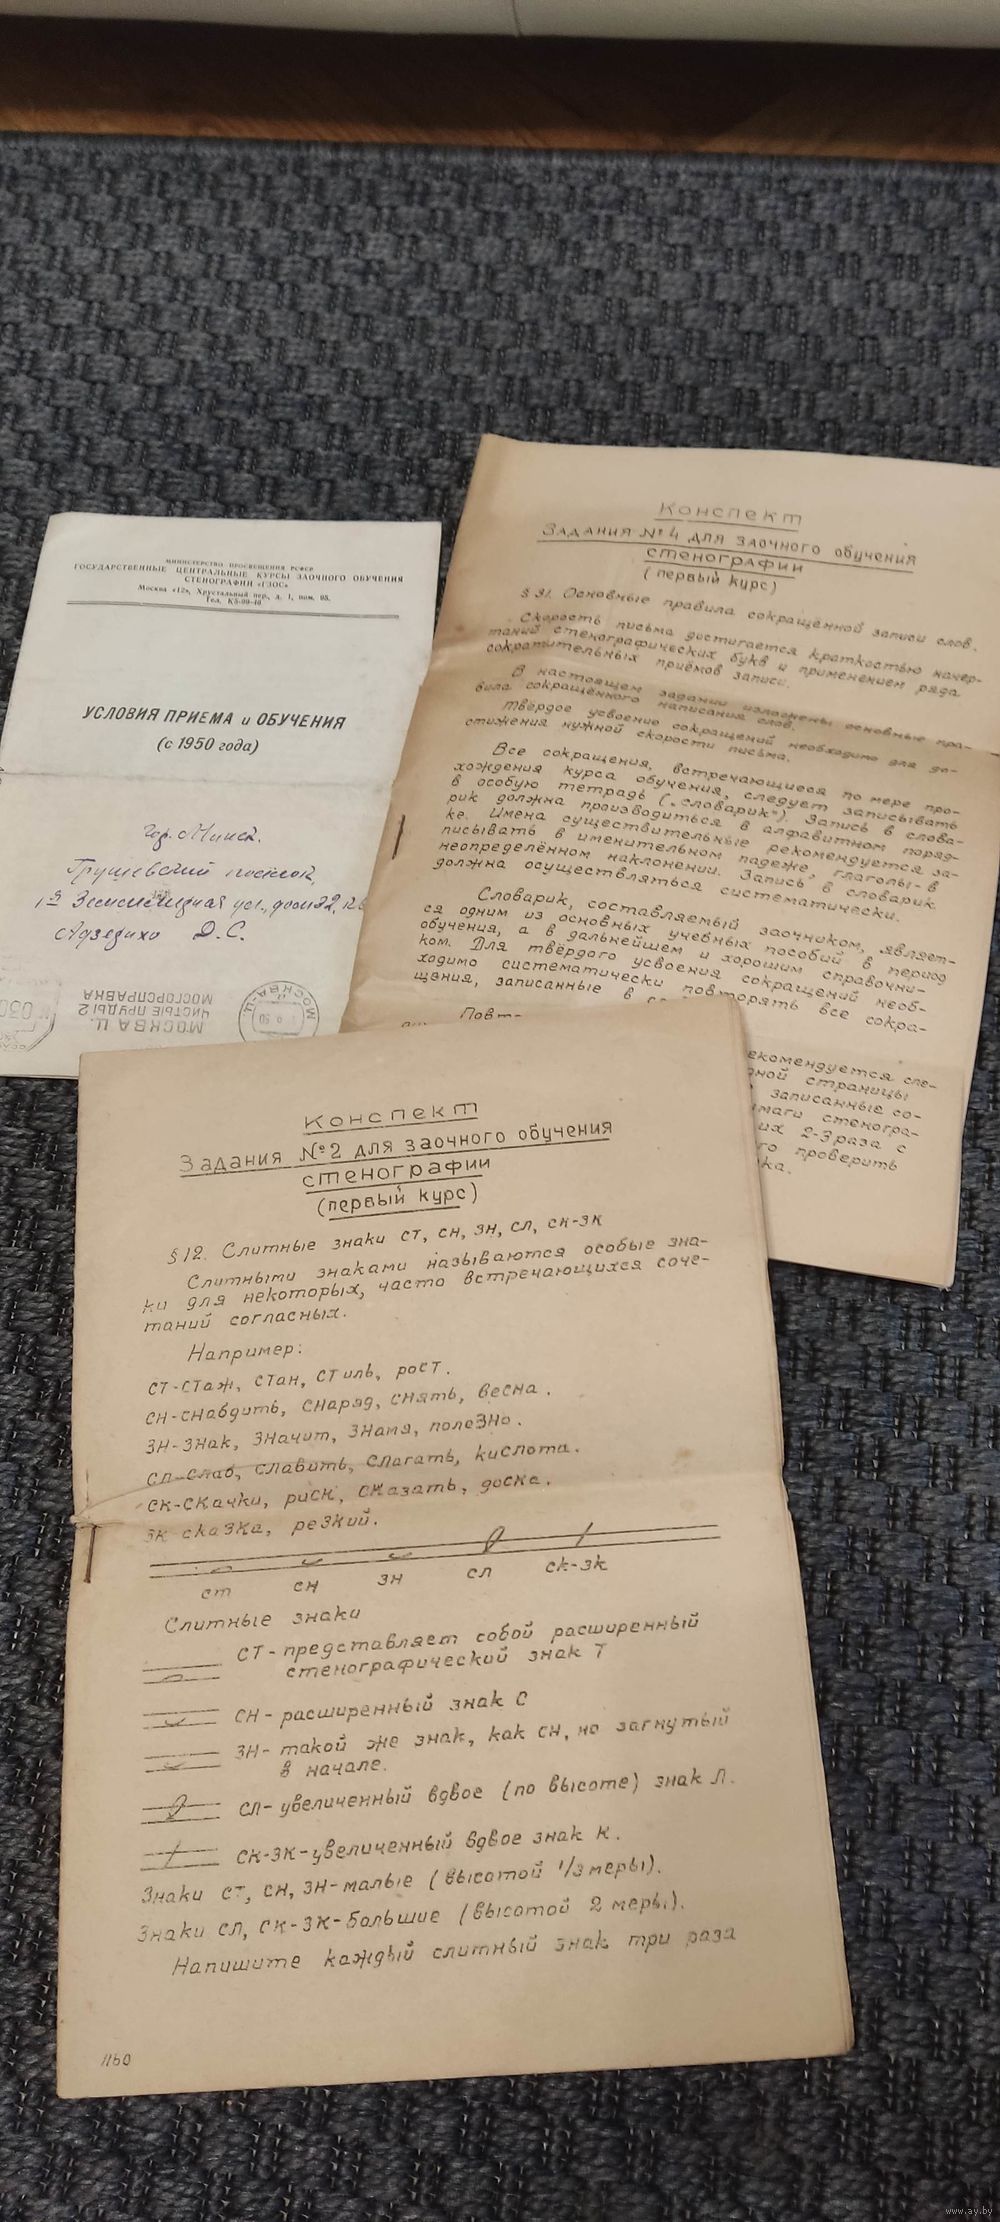 МИНИСТЕРСТВО ПРОСВЕЩЕНИЯ РСФСР
ГОСУДАРСТВЕННЫЕ ЦЕНТРАЛЬНЫЕ КУРСЫ ЗАОЧНОГО ОБУЧЕНИЯ
СТЕНОГРАФИИ «ГЗОС»
Москва «12», Хрустальный пер., д. 1, пом. 95.
Тел. К5-99-46
УСЛОВИЯ ПРИЕМА и ОБУЧЕНИЯ
(с 1950 года)
гор. Минск.
Грушевский поселок,
ул., дом 22,
Д. С.
МОСКВА Ц.
ЧИСТЫЕ ПРУДЫ 2
МОСГОРСПРАВКА
МОСКВА-Ц.
Конспект
Задания №4 для заочного обучения
стенографии
(первый курс)
§ 31. Основные правила сокращённой записи слов.
Скорость письма достигается краткостью начер-
таний стенографических букв и применением ряда
сократительных приёмов записи.
В настоящем задании изложены основные пра-
вила сокращённого написания слов.
Твёрдое усвоение сокращений необходимо для до-
стижения нужной скорости письма.
Все сокращения, встречающиеся по мере про-
хождения курса обучения, следует записывать
в особую тетрадь („словарик“). Запись в слова-
рик должна производиться в алфавитном поряд-
ке. Имена существительные рекомендуется за-
писывать в именительном падеже, глаголы-в
неопределённом наклонении. Запись в словарик
должна осуществляться систематически.
Словарик, составляемый заочником, являет-
ся одним из основных учебных пособий в период
обучения, а в дальнейшем и хорошим справочни-
ком. Для твёрдого усвоения сокращений необ-
ходимо систематически повторять все сокра-
щения, записанные в
Повт-
екомендуется сле-
дной страницы
записанные со-
маги стеногра-
их 2-3 раза с
го проверить
ка.
Конспект
Задания №2 для заочного обучения
стенографии
(первый курс)
§12. Слитные знаки ст, сн, зн, сл, ск-зк
Слитными знаками называются особые зна-
ки для некоторых, часто встречающихся соче-
таний согласных.
Например:
СТ-СТаж, СТан, СТиль, росТ.
СН-СНабдить, СНаряд, СНять, веСНа.
ЗН-ЗНак, ЗНачит, ЗНамя, полеЗНо.
СЛ-СЛаб, СЛавить, СЛагать, киСЛота.
СК-СКачки, риСК, СКазать, доСКа.
ЗК скаЗКа, реЗКий.
ст сн зн сл ск-зк
Слитные знаки
СТ-представляет собой расширенный
стенографический знак Т
СН-расширенный знак С
ЗН-такой же знак, как СН, но загнутый
в начале.
СЛ-увеличенный вдвое (по высоте) знак Л.
СК-ЗК-увеличенный вдвое знак К.
Знаки СТ, СН, ЗН-малые (высотой 1/3 меры).
Знаки СЛ, СК-ЗК-большие (высотой 2 меры).
Напишите каждый слитный знак три раза
1160
www.ay.by